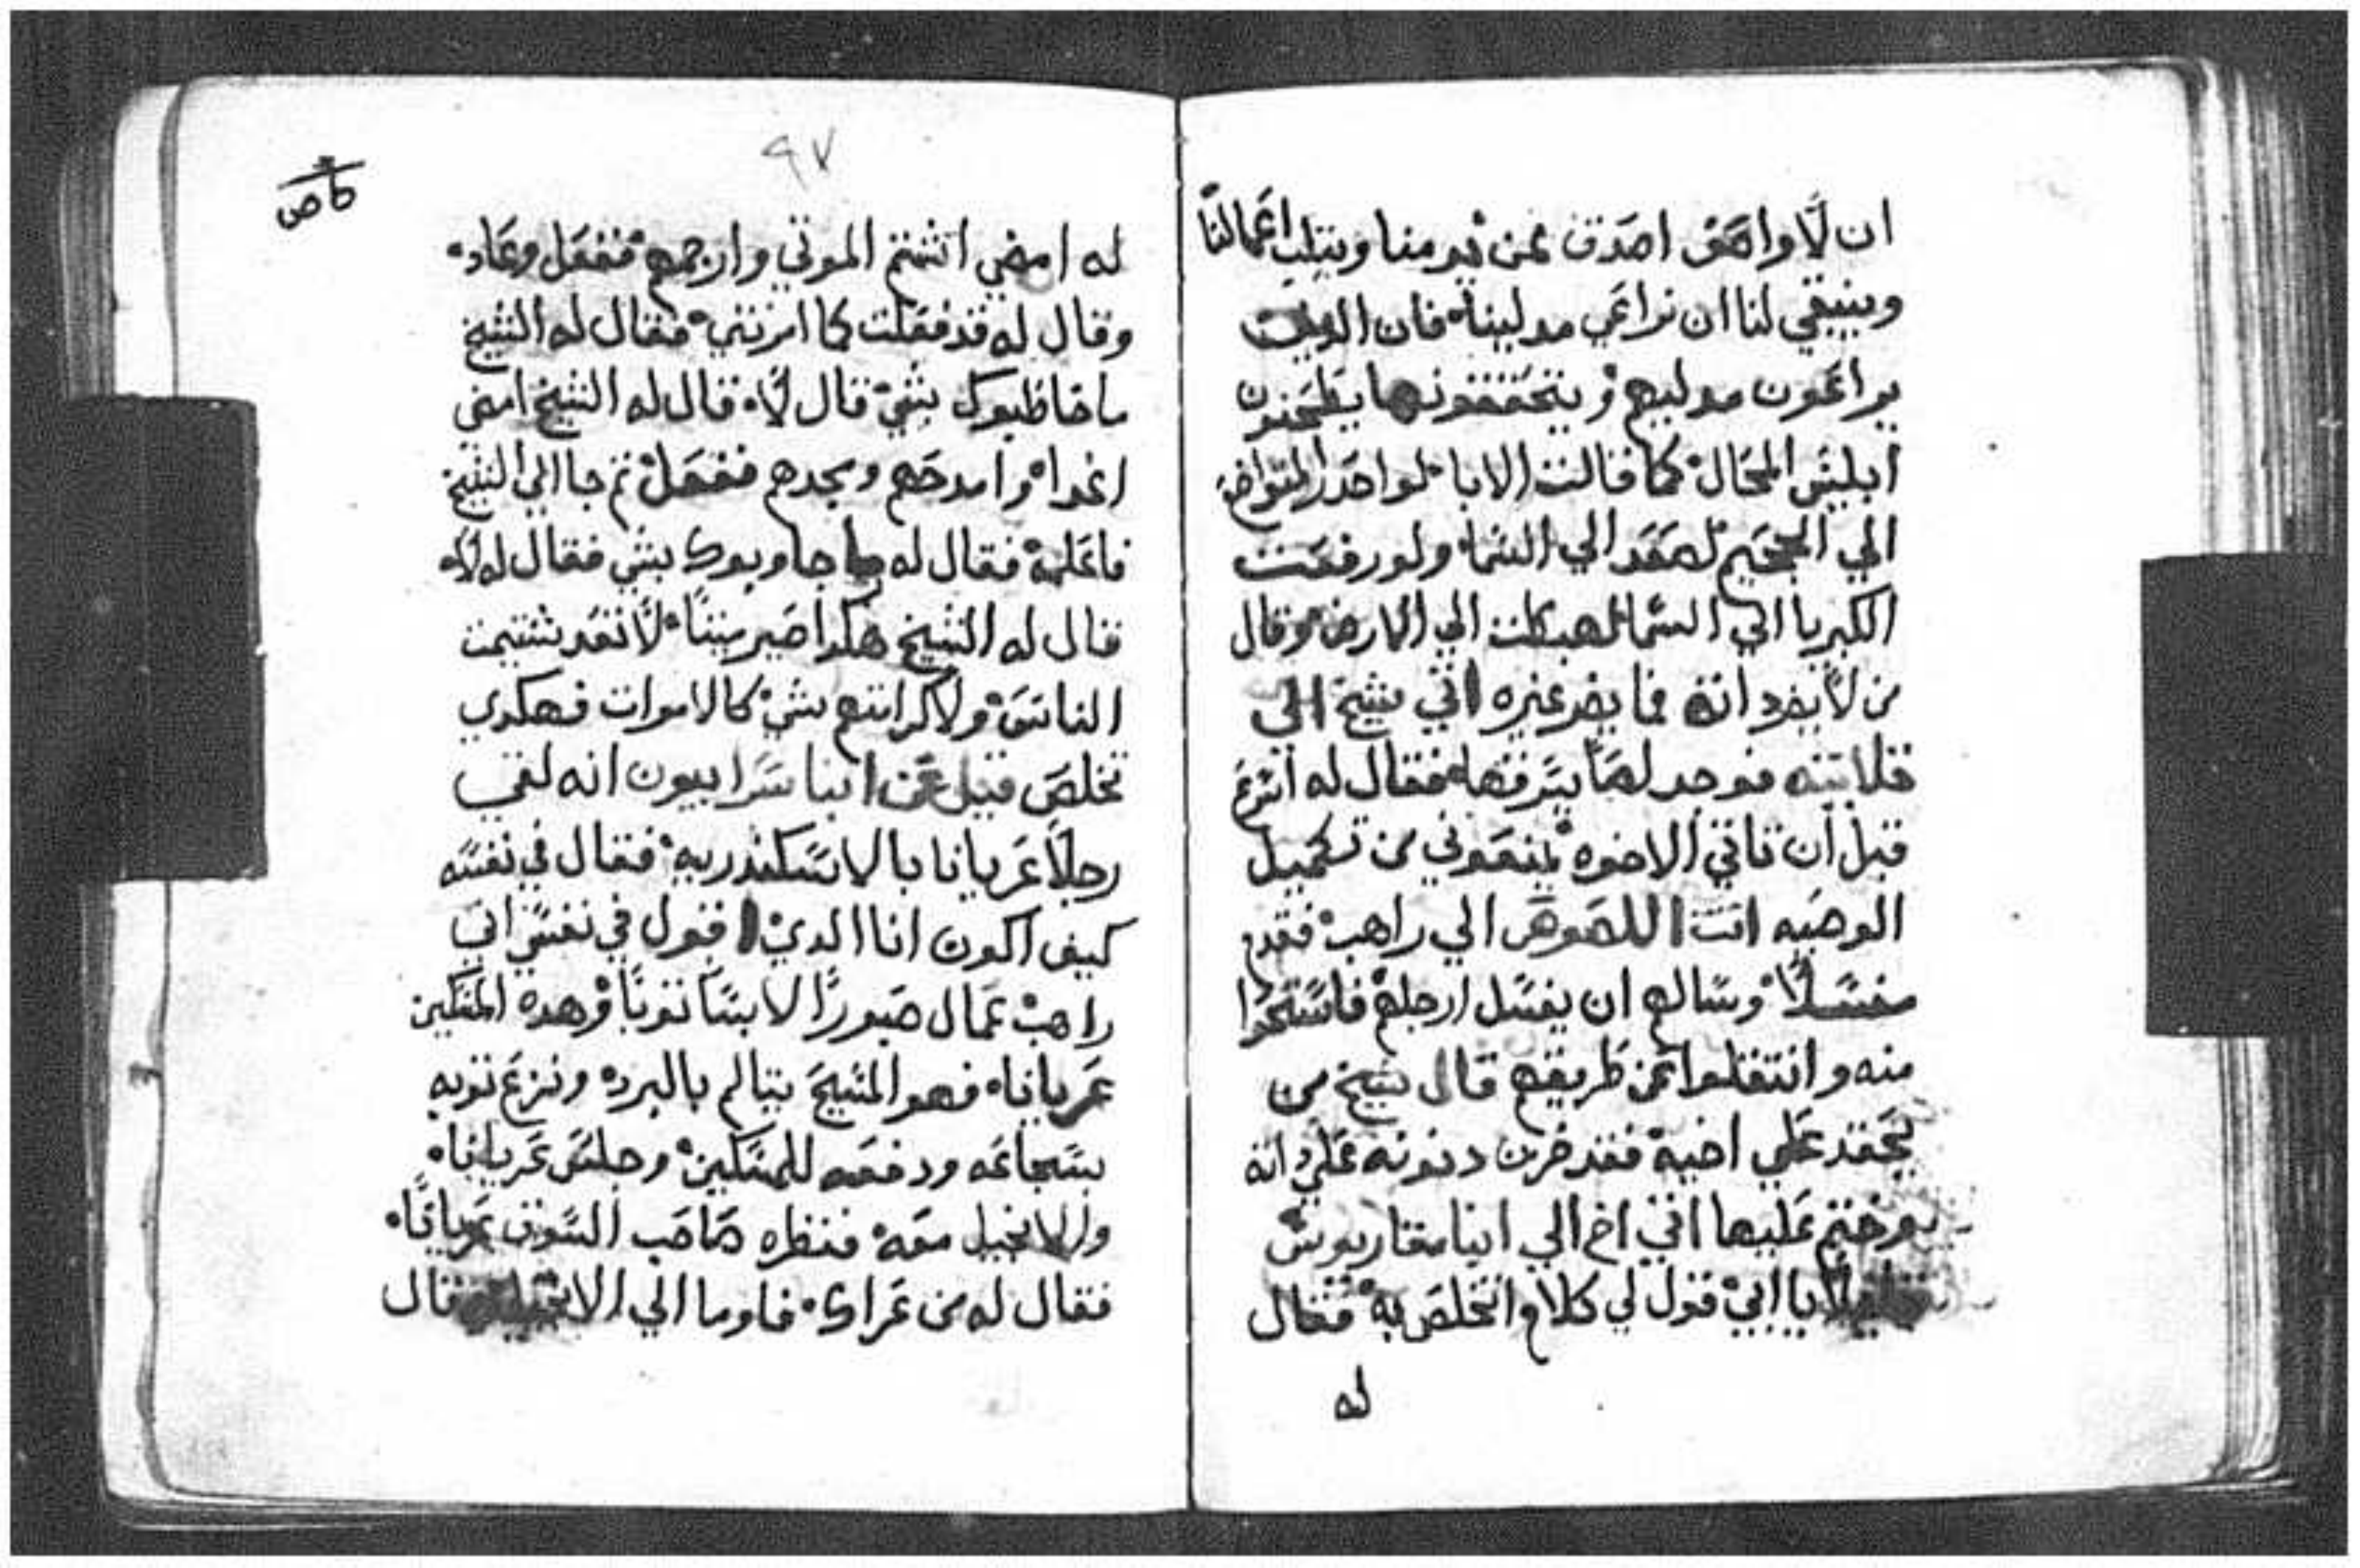 ان لا واصق اصدق عمن يدمنا ويتلب اعمالنا
وينبغي لنا ان نراعي مدلينا فان الدين
يراعون مدليهم و يتحققونها يطحنون
ابليس المحال كما قالت الابا لو احدر التواضع
الي الجحيم لصعد الي السما ولو رفعت
الكبريا الي السما لهبطت الي الارض وقال
من لا يفيد انه فما يفد غيره اتي شيخ الي
قلايته فوجد لصا يسرقها فقال له اسرع
قبل ان تاتي الاخوه يمنعوني من تكميل
الوصيه اتت اللصوص الي راهب فقدم
مغسلا وسالهم ان يغسل ارجلهم فاستحوا
منه وانتقلوا عن طريقهم قال شيخ من
يحقد علي اخيه فقد خزن دنوبه علي انه
وختم عليها اتي اخ الي ابنا مقاريوس
يا ابي قول لي كلام اتخلص به فقال
له
٩٧
له امضي اشتم الموتي وارجع ففعل وعاد
وقال له قد فعلت كما امرتني فقال له الشيخ
ما خاطبوك بشي قال لا قال له الشيخ امضي
اغدا وامدحهم ومجدهم ففعل تم جا الي الشيخ
فاعلمه فقال له ما جاوبوك بشي فقال له لا
قال له الشيخ هكدا صير ميتا لا تعد شتيمت
الناس ولا كرامتهم بشي كالاموات فهكدي
تخلص قيل عن ابنا سرابيون انه لقي
رجلا عريانا بالاسكندريه فقال في نفسه
كيف اكون انا الدي اقول في نفسي اني
راهب عمال صبورا لابسا توبا وهده المسكين
عريانا فهو المسيح يتالم بالبرد ونزع توبه
بسجاعه ودفعه للمسكين وجلس عريانا
والانجيل معه فنظره صاحب السوق عريانا
فقال له من عراك فاوما الي الانجيل وقال